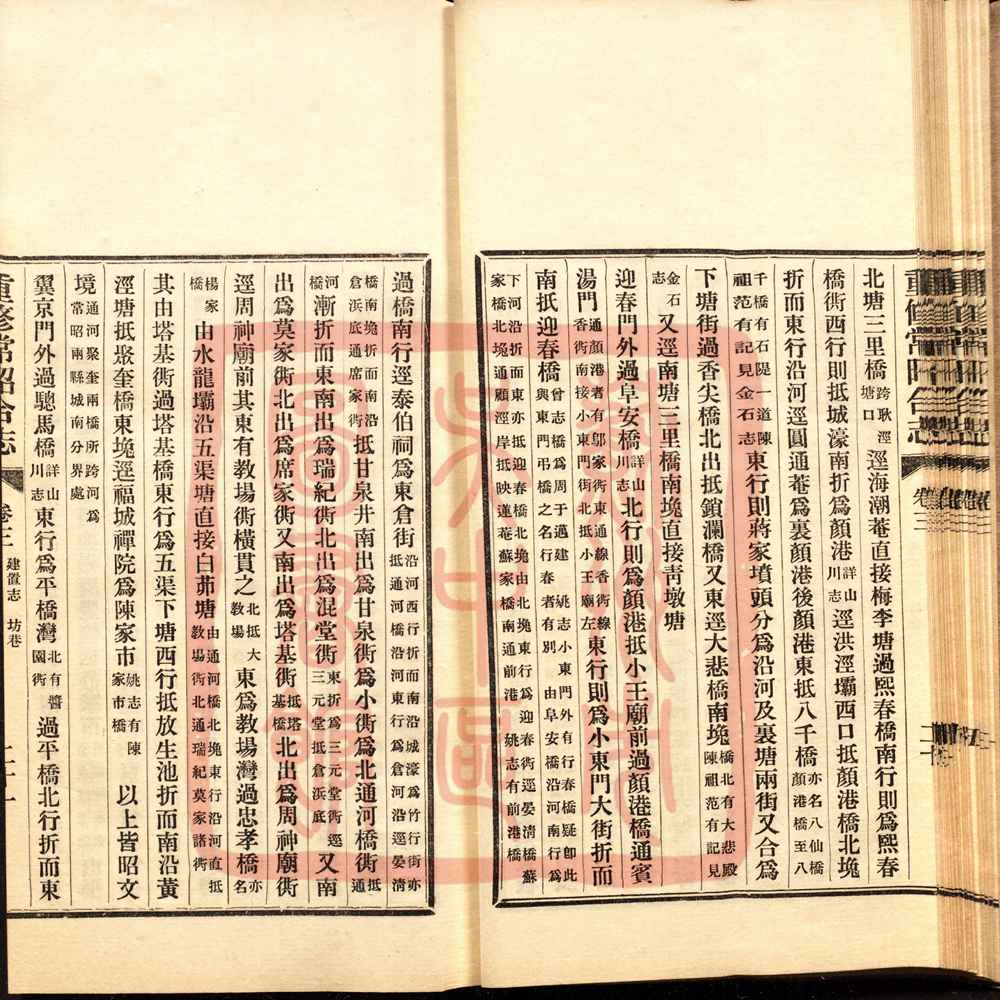 北塘三里橋跨耿涇塘口涇海潮菴直接梅李塘過熙春橋南行則爲熙春
橋衖西行則抵城濠南折爲顔港詳山川志涇洪涇壩西口抵顔港橋北堍
折而東行沿河逕圓通菴爲裏顔港後顔港東抵八千橋亦名八仙橋顔港橋至八
千橋有石隄一道陳祖范有記見金石志東行則蔣家墳頭分爲沿河及裏塘兩街又合爲
下塘街過香尖橋北出抵鎖瀾橋又東逕大悲橋南堍橋北有大悲殿陳祖范有記見
金石志又逕南塘三里橋南堍直接靑墩塘
迎春門外過阜安橋詳山川志北行則爲顔港抵小王廟前過顔港橋通賓
湯門通顔港者有鄔家衖東通線香衖線香衖南接小東門街北抵小王廟左東行則爲小東門大街折而
南抵迎春橋曾志橋爲周于邁建姚志小東門外有行春橋疑卽此興東門弔橋之名行春者有別由阜安橋沿河南行爲
下河沿折而東亦抵迎春橋北堍由北堍東行爲迎春衖逕晏淸橋蘇家橋北堍通顧涇岸抵映蓮菴蘇家橋南通前港姚志有前港橋
過橋南行逕泰伯祠爲東倉街沿河折而南沿城濠爲竹行街亦抵通河橋西行沿河東行爲倉河沿逕晏淸
橋南堍折而南沿倉浜底通席家衖抵甘泉井南出爲甘泉衖爲小衖爲北通河橋衖抵通
河橋漸折而東南出爲瑞紀衖北出爲混堂衖東折爲三元堂衖逕三元堂抵倉浜底又南
出爲莫家衖北出爲席家衖又南出爲塔基衖抵塔基橋北出爲周神廟衖
逕周神廟前其東有教場衖橫貫之北抵大教場東爲教場灣過忠孝橋亦名
楊家橋由水龍壩沿五渠塘直接白茆塘由通河橋北堍東行沿河直抵教場衖北通瑞紀莫家諸衖
其由塔基衖過塔基橋東行爲五渠下塘西行抵放生池折而南沿黃
涇塘抵聚奎橋東堍逕福城禪院爲陳家市姚志有陳家市橋以上皆昭文
境通河聚奎兩橋所跨河爲常昭兩縣城南分界處
翼京門外過驄馬橋詳山川志東行爲平橋灣北有醬園衖過平橋北行折而東
重修常昭合志
卷三
建置志 坊巷